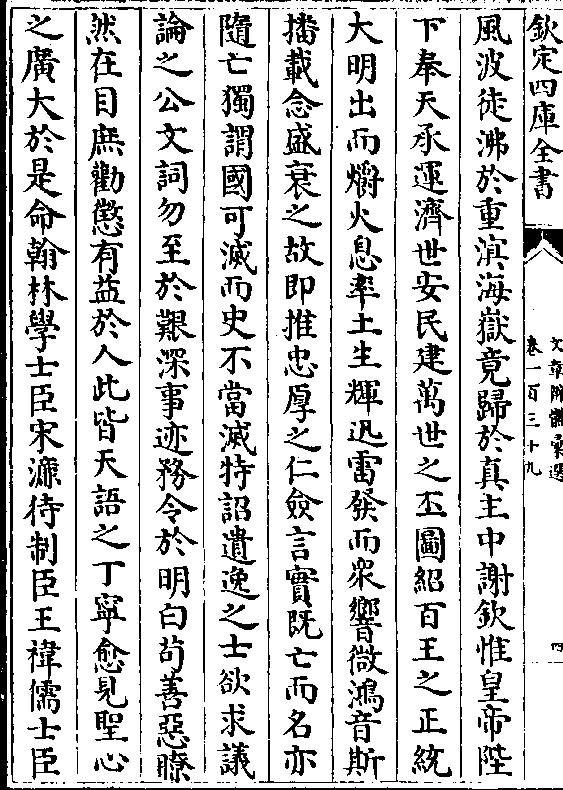 欽定四庫全書
文章辨體彙選
卷一百三十九
四
風波徒沸於重溟海嶽竟歸於真主中謝欽惟皇帝陛
下奉天承運濟世安民建萬世之丕圖紹百王之正統
大明出而爝火息率土生輝迅雷發而衆響微鴻音斯
播載念盛衰之故即推忠厚之仁僉言實既亡而名亦
隨亡獨謂國可滅而史不當滅特詔遺逸之士欲求議
論之公文詞勿至於艱深事迹務令於明白茍善惡瞭
然在目庶勸懲有益於人此皆天語之丁寧愈見聖心
之廣大於是命翰林學士臣宋濂待制臣王禕儒士臣